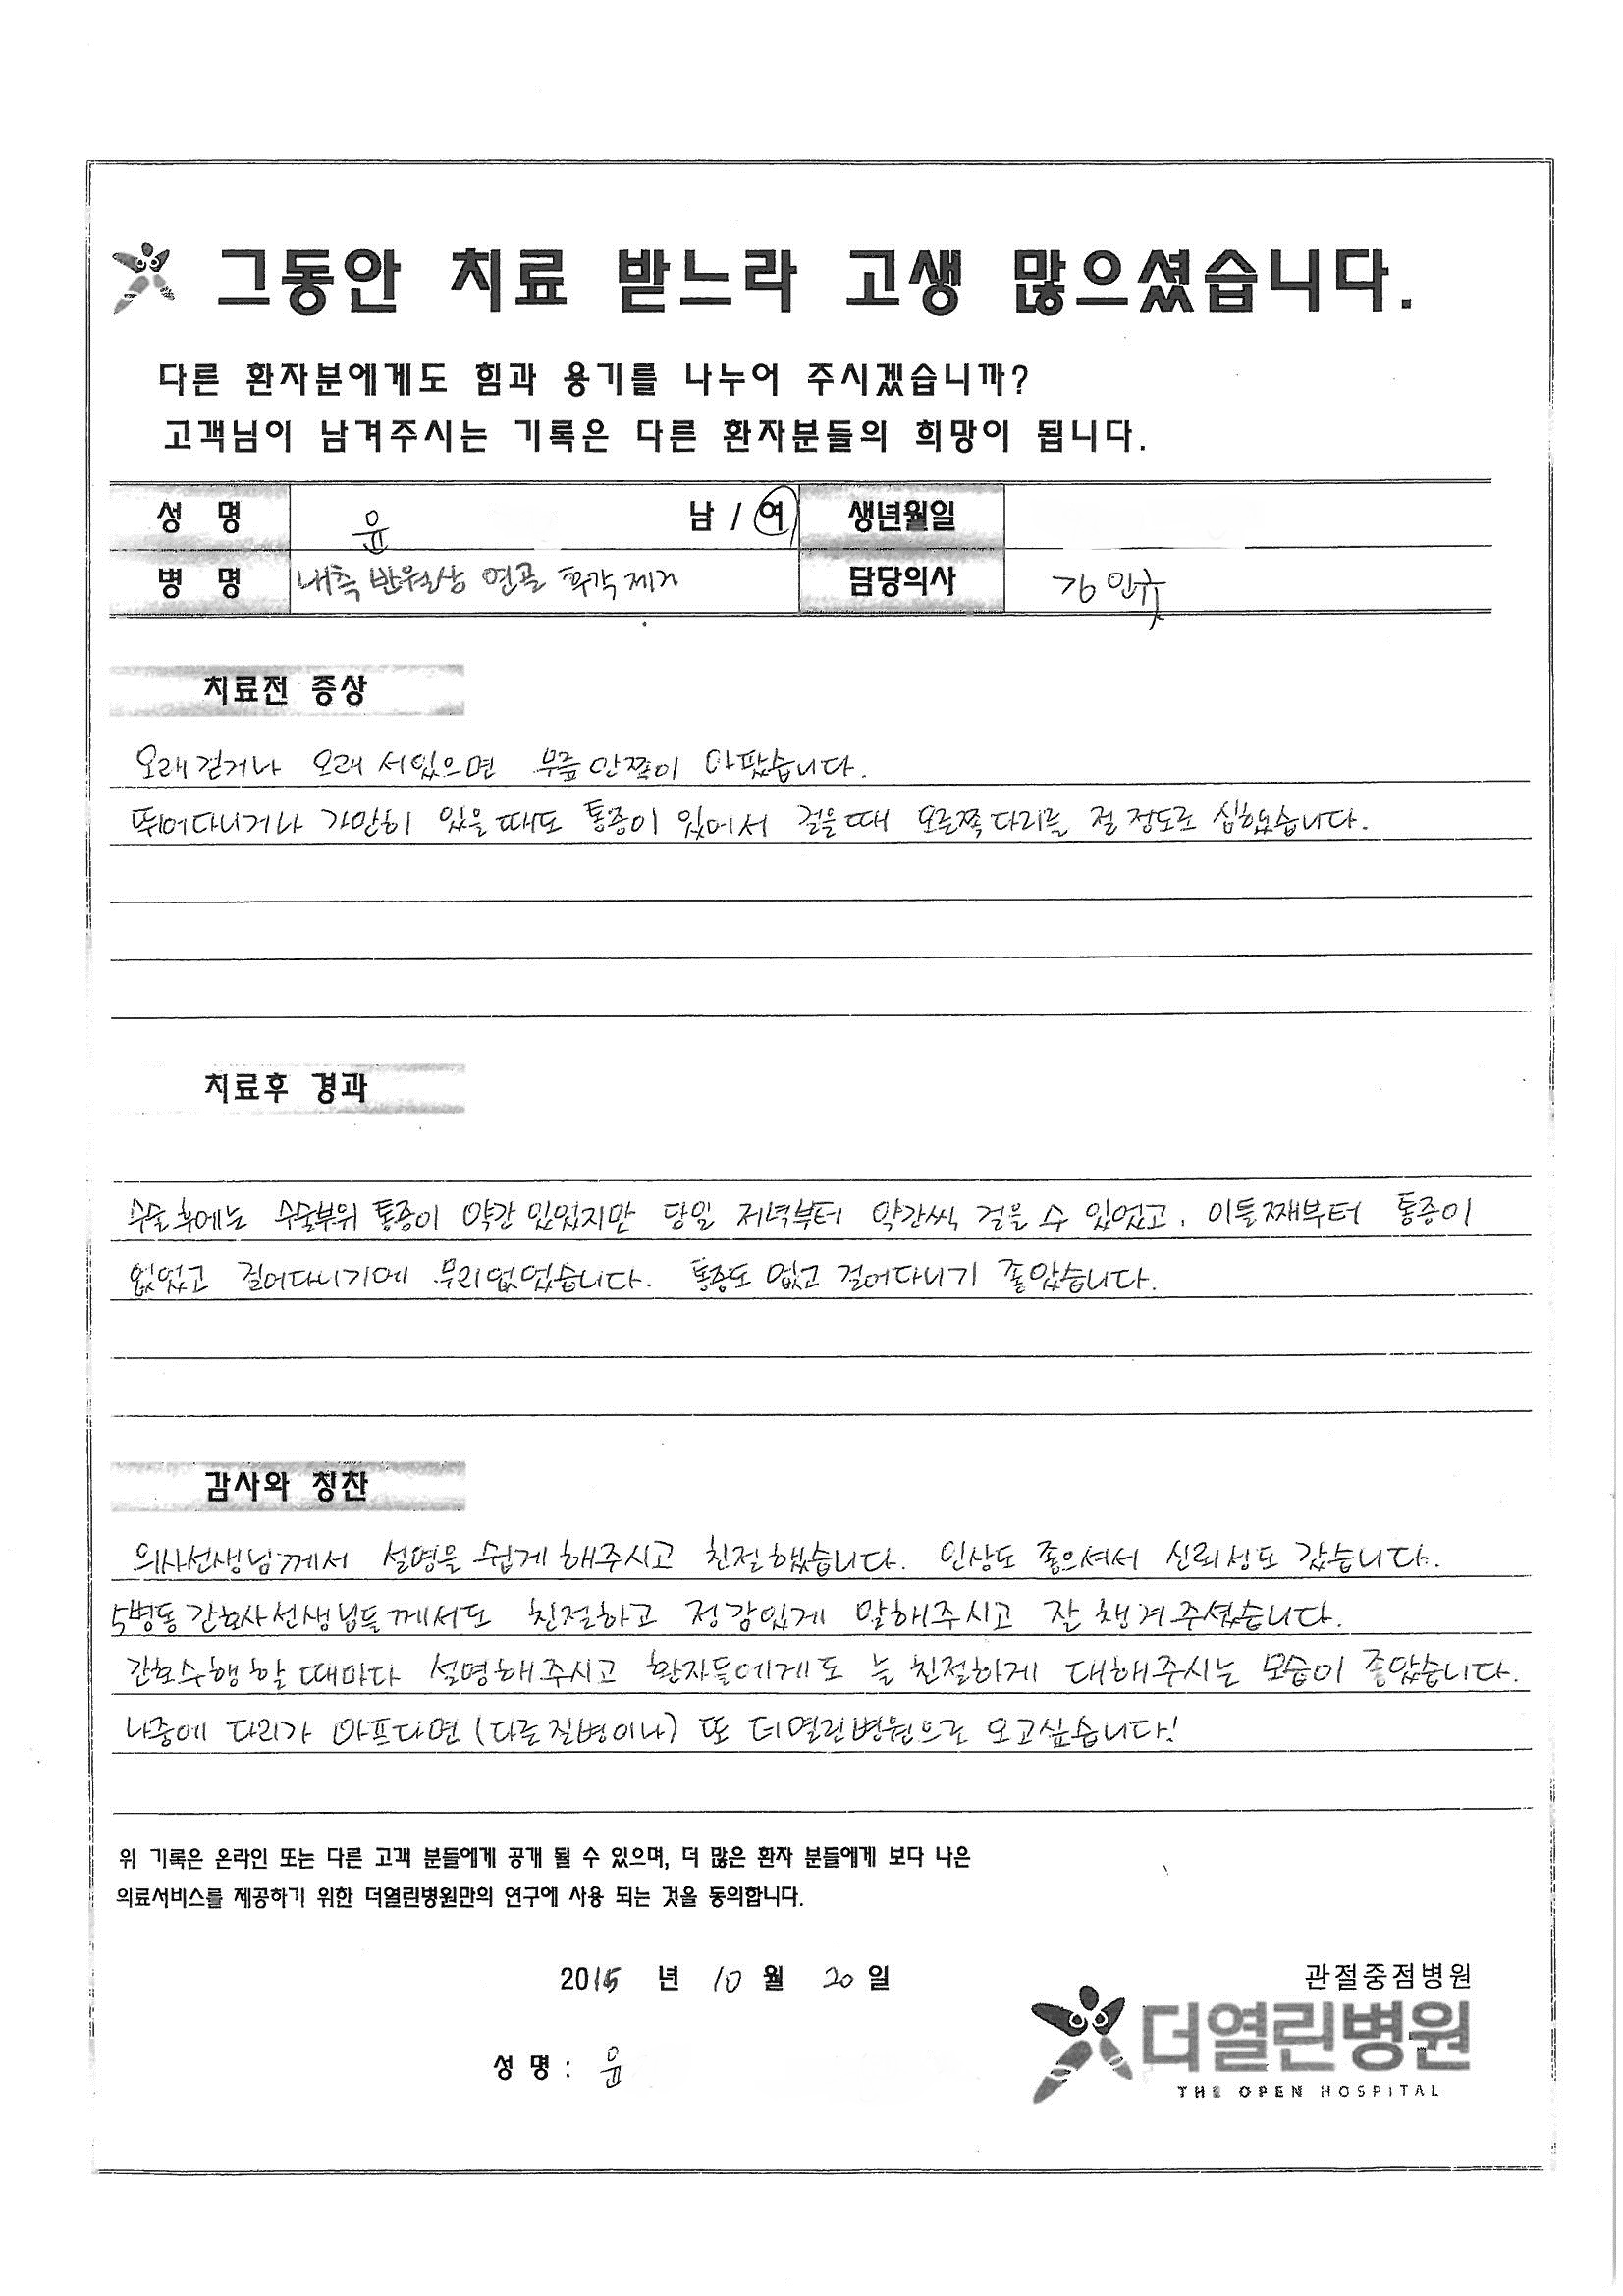 그동안 치료 받느라 고생 많으셨습니다.
다른 환자분에게도 힘과 용기를 나누어 주시겠습니까?
고객님이 남겨주시는 기록은 다른 환자분들의 희망이 됩니다.
성 명 윤 남 / 여 생년월일
병 명 내측 반월상 연골 후각 제거 담당의사 김인규
치료전 증상
오래 걷거나 오래 서있으면 무릎 안쪽이 아팠습니다.
뛰어다니거나 가만히 있을 때도 통증이 있어서 걸을 때 오른쪽 다리를 절 정도로 심했습니다.
치료후 경과
수술 후에는 수술부위 통증이 약간 있었지만 당일 저녁부터 약간씩 걸을 수 있었고, 이틀째부터 통증이
없었고 걸어다니기에 무리없었습니다. 통증도 없고 걸어다니기 좋았습니다.
감사와 칭찬
의사선생님께서 설명을 쉽게 해주시고 친절했습니다. 인상도 좋으셔서 신뢰성도 갔습니다.
5병동 간호사 선생님들께서도 친절하고 정감있게 말해주시고 잘 챙겨주셨습니다.
간호수행할 때마다 설명해주시고 환자들에게도 늘 친절하게 대해주시는 모습이 좋았습니다.
나중에 다리가 아프다면 (다른 질병이나) 또 더열린병원으로 오고싶습니다!
위 기록은 온라인 또는 다른 고객 분들에게 공개 될 수 있으며, 더 많은 환자 분들에게 보다 나은
의료서비스를 제공하기 위한 더열린병원만의 연구에 사용 되는 것을 동의합니다.
2015 년 10 월 20 일
성 명 : 윤
관절중점병원
더열린병원
THE OPEN HOSPITAL